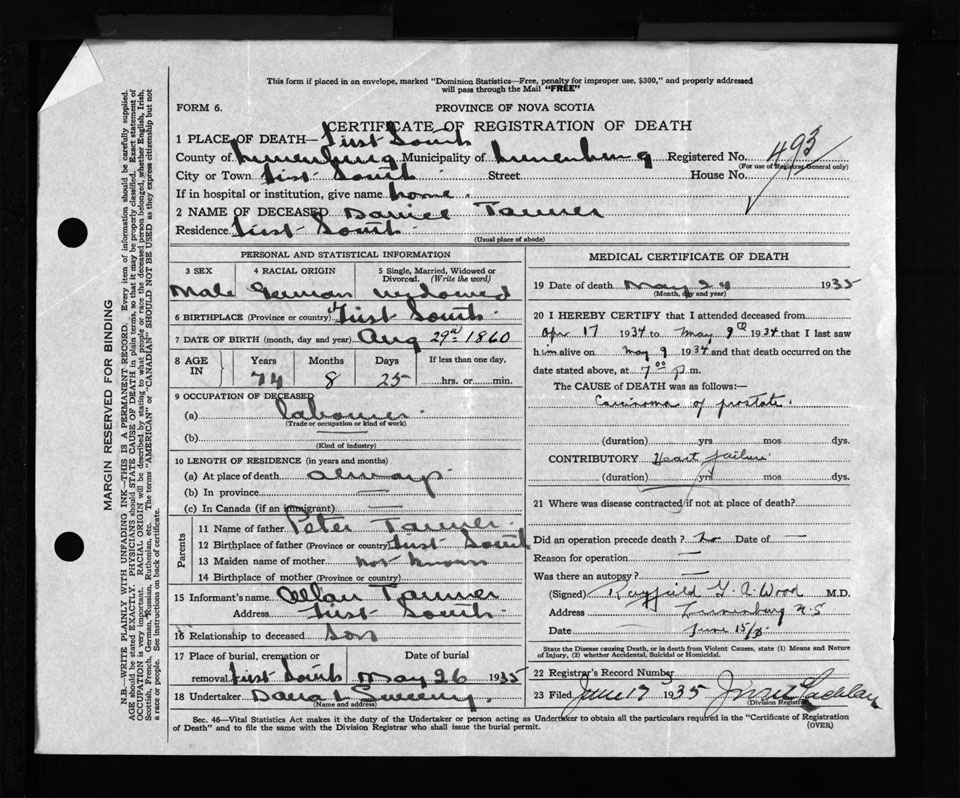 This form if placed in an envelope, marked "Dominion Statistics—Free, penalty for improper use, $300," and properly addressed
will pass through the Mail "FREE"
FORM 6. PROVINCE OF NOVA SCOTIA
CERTIFICATE OF REGISTRATION OF DEATH
1 PLACE OF DEATH— First South
County of Lunenburg Municipality of Lunenburg Registered No. 493
(For use of Registrar General only)
City or Town First South Street House No.
If in hospital or institution, give name home.
2 NAME OF DECEASED Daniel Tanner
Residence First South
(Usual place of abode)
PERSONAL AND STATISTICAL INFORMATION
3 SEX 4 RACIAL ORIGIN 5 Single, Married, Widowed or
Divorced. (Write the word)
Male German widowed
6 BIRTHPLACE (Province or country) First South
7 DATE OF BIRTH (month, day and year) Aug 29th 1860
8 AGE IN Years Months Days If less than one day,
74 8 25 hrs. or min.
9 OCCUPATION OF DECEASED
(a) labourer
(Trade or occupation or kind of work)
(b)
(Kind of industry)
10 LENGTH OF RESIDENCE (in years and months)
(a) At place of death always
(b) In province —
(c) In Canada (if an immigrant) —
Parents
11 Name of father Peter Tanner
12 Birthplace of father (Province or country) First South
13 Maiden name of mother not known
14 Birthplace of mother (Province or country)
15 Informant's name Allan Tanner
Address First South
16 Relationship to deceased Son
17 Place of burial, cremation or Date of burial
removal First South May 26 1935
18 Undertaker Sweeny
(Name and address)
MEDICAL CERTIFICATE OF DEATH
19 Date of death May 24 1935
(Month, day and year)
20 I HEREBY CERTIFY that I attended deceased from
Apr 17 1934 to May 9th 1934 that I last saw
him alive on May 9 1934 and that death occurred on the
date stated above, at 7 00 p.m.
The CAUSE of DEATH was as follows:—
Carcinoma of prostate.
(duration) yrs mos dys.
CONTRIBUTORY Heart failure
(duration) yrs mos dys.
21 Where was disease contracted if not at place of death?
Did an operation precede death? no Date of —
Reason for operation —
Was there an autopsy? —
(Signed) G. A. Wood M.D.
Address Lunenburg N.S
Date June 15/35
State the Disease causing Death, or in death from Violent Causes, state (1) Means and Nature
of Injury, (2) whether Accidental, Suicidal or Homicidal.
22 Registrar's Record Number
23 Filed June 17 1935
(Division Registrar)
Sec. 46—Vital Statistics Act makes it the duty of the Undertaker or person acting as Undertaker to obtain all the particulars required in the "Certificate of Registration
of Death" and to file the same with the Division Registrar who shall issue the burial permit. (OVER)
MARGIN RESERVED FOR BINDING
N.B.—WRITE PLAINLY WITH UNFADING INK—THIS IS A PERMANENT RECORD. Every item of information should be carefully supplied.
AGE should be stated EXACTLY. PHYSICIANS should STATE CAUSE OF DEATH in plain terms, so that it may be properly classified. Exact statement of
OCCUPATION is very important. RACIAL ORIGIN will be described by stating to what people or race the deceased person belonged, whether English, Irish,
Scottish, French, German, Russian, Ruthenian, etc. The terms "AMERICAN" or "CANADIAN" SHOULD NOT BE USED as they express citizenship but not
a race or people. See instructions on back of certificate.